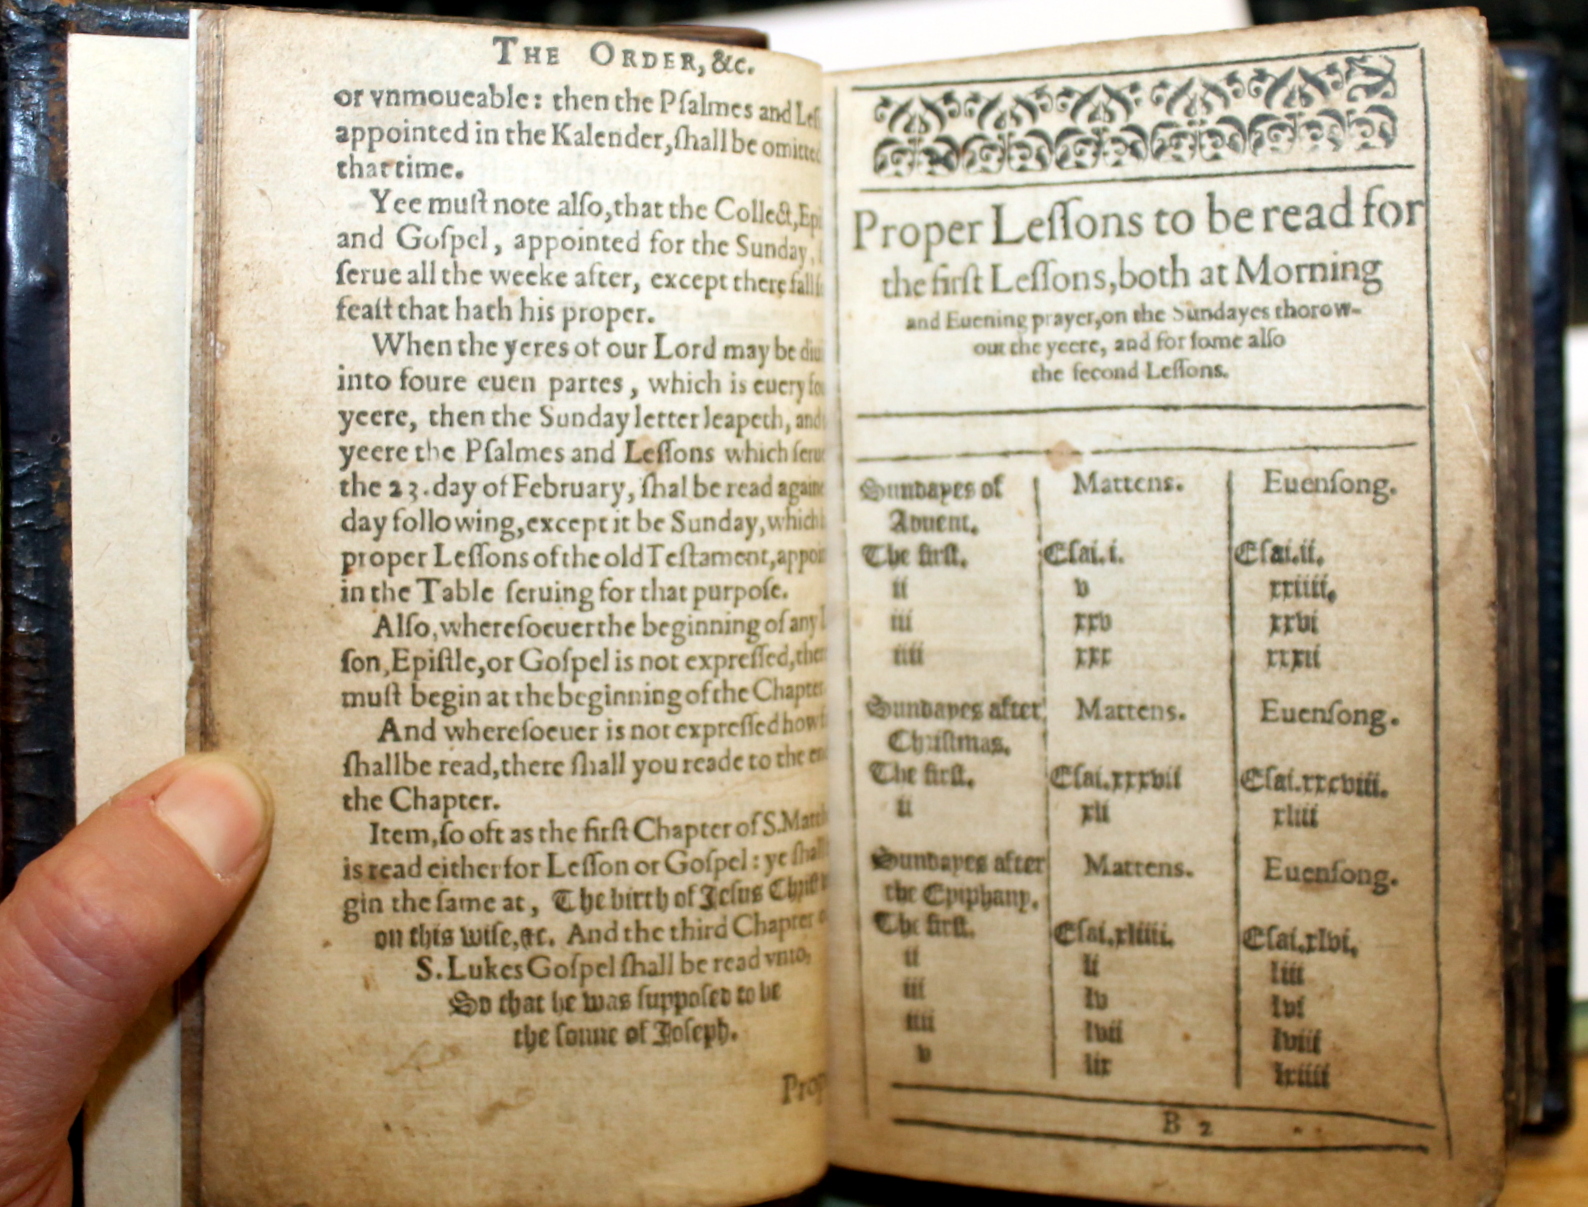 THE ORDER, &c.
or vnmoueable: then the Pſalmes and Leſ
appointed in the Kalender, ſhall be omitted
that time.
Yee muſt note alſo, that the Collect, Epi
and Goſpel, appointed for the Sunday,
ſerue all the weeke after, except there fall ſ
feaſt that hath his proper.
When the yeres of our Lord may be diui
into foure euen partes, which is euery fo
yeere, then the Sunday letter leapeth, and
yeere the Pſalmes and Leſſons which ſerue
the 23. day of February, ſhal be read againe
day following, except it be Sunday, which
proper Leſſons of the old Teſtament, appoi
in the Table ſeruing for that purpoſe.
Alſo, whereſoeuer the beginning of any L
ſon, Epiſtle, or Goſpel is not expreſſed, the
muſt begin at the beginning of the Chapter
And whereſoeuer is not expreſſed how f
ſhall be read, there ſhall you reade to the en
the Chapter.
Item, ſo oft as the firſt Chapter of S. Matth
is read either for Leſſon or Goſpel: ye ſhall
gin the ſame at, The birth of Jeſus Chriſt
on this wiſe, &c. And the third Chapter o
S. Lukes Goſpel ſhall be read vnto,
So that he was ſuppoſed to be
the ſonne of Joſeph.
Prop
Proper Leſſons to be read for
the firſt Leſſons, both at Morning
and Euening prayer, on the Sundayes thorow-
out the yeere, and for ſome alſo
the ſecond Leſſons.
Sundayes of Mattens. Euenſong.
Aduent.
The firſt. Eſai. i. Eſai. ii.
ii v xxiiii.
iii xxv xxvi
iiii xxx xxxii
Sundayes after Mattens. Euenſong.
Chriſtmas.
The firſt. Eſai. xxxvii Eſai. xxxviii.
ii xli xliii
Sundayes after Mattens. Euenſong.
the Epiphany.
The firſt. Eſai. xliiii. Eſai. xlvi.
ii li liii
iii lv lvi
iiii lvii lviii
v lix lxiiii
B 2